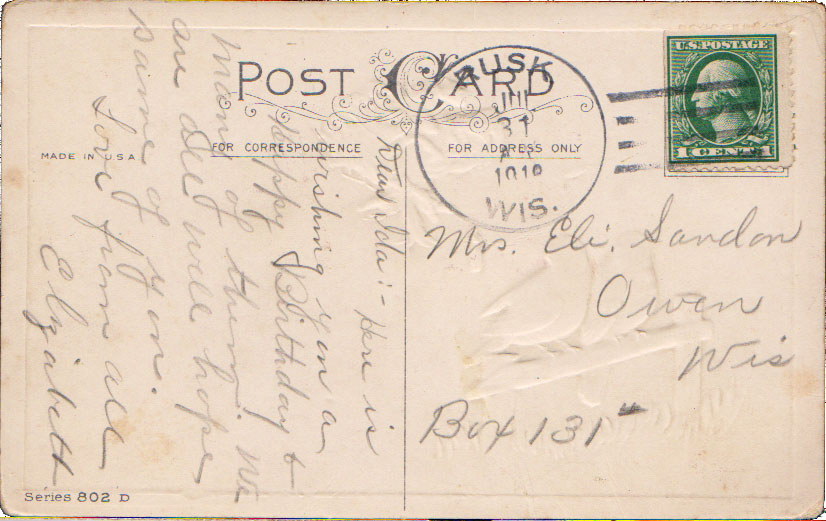 POST CARD
FOR CORRESPONDENCE
FOR ADDRESS ONLY
MADE IN U.S.A
RUSK
31
1919
WIS.
U.S. POSTAGE
1 CENT 1
Dear Ida:- Here is
wishing you a
Happy Birthday &
many of them. We
are all well hope
same of you.
Love from all
Elizabeth
Mrs. Eli. Sandon
Owen
Wis
Box 131
Series 802 D